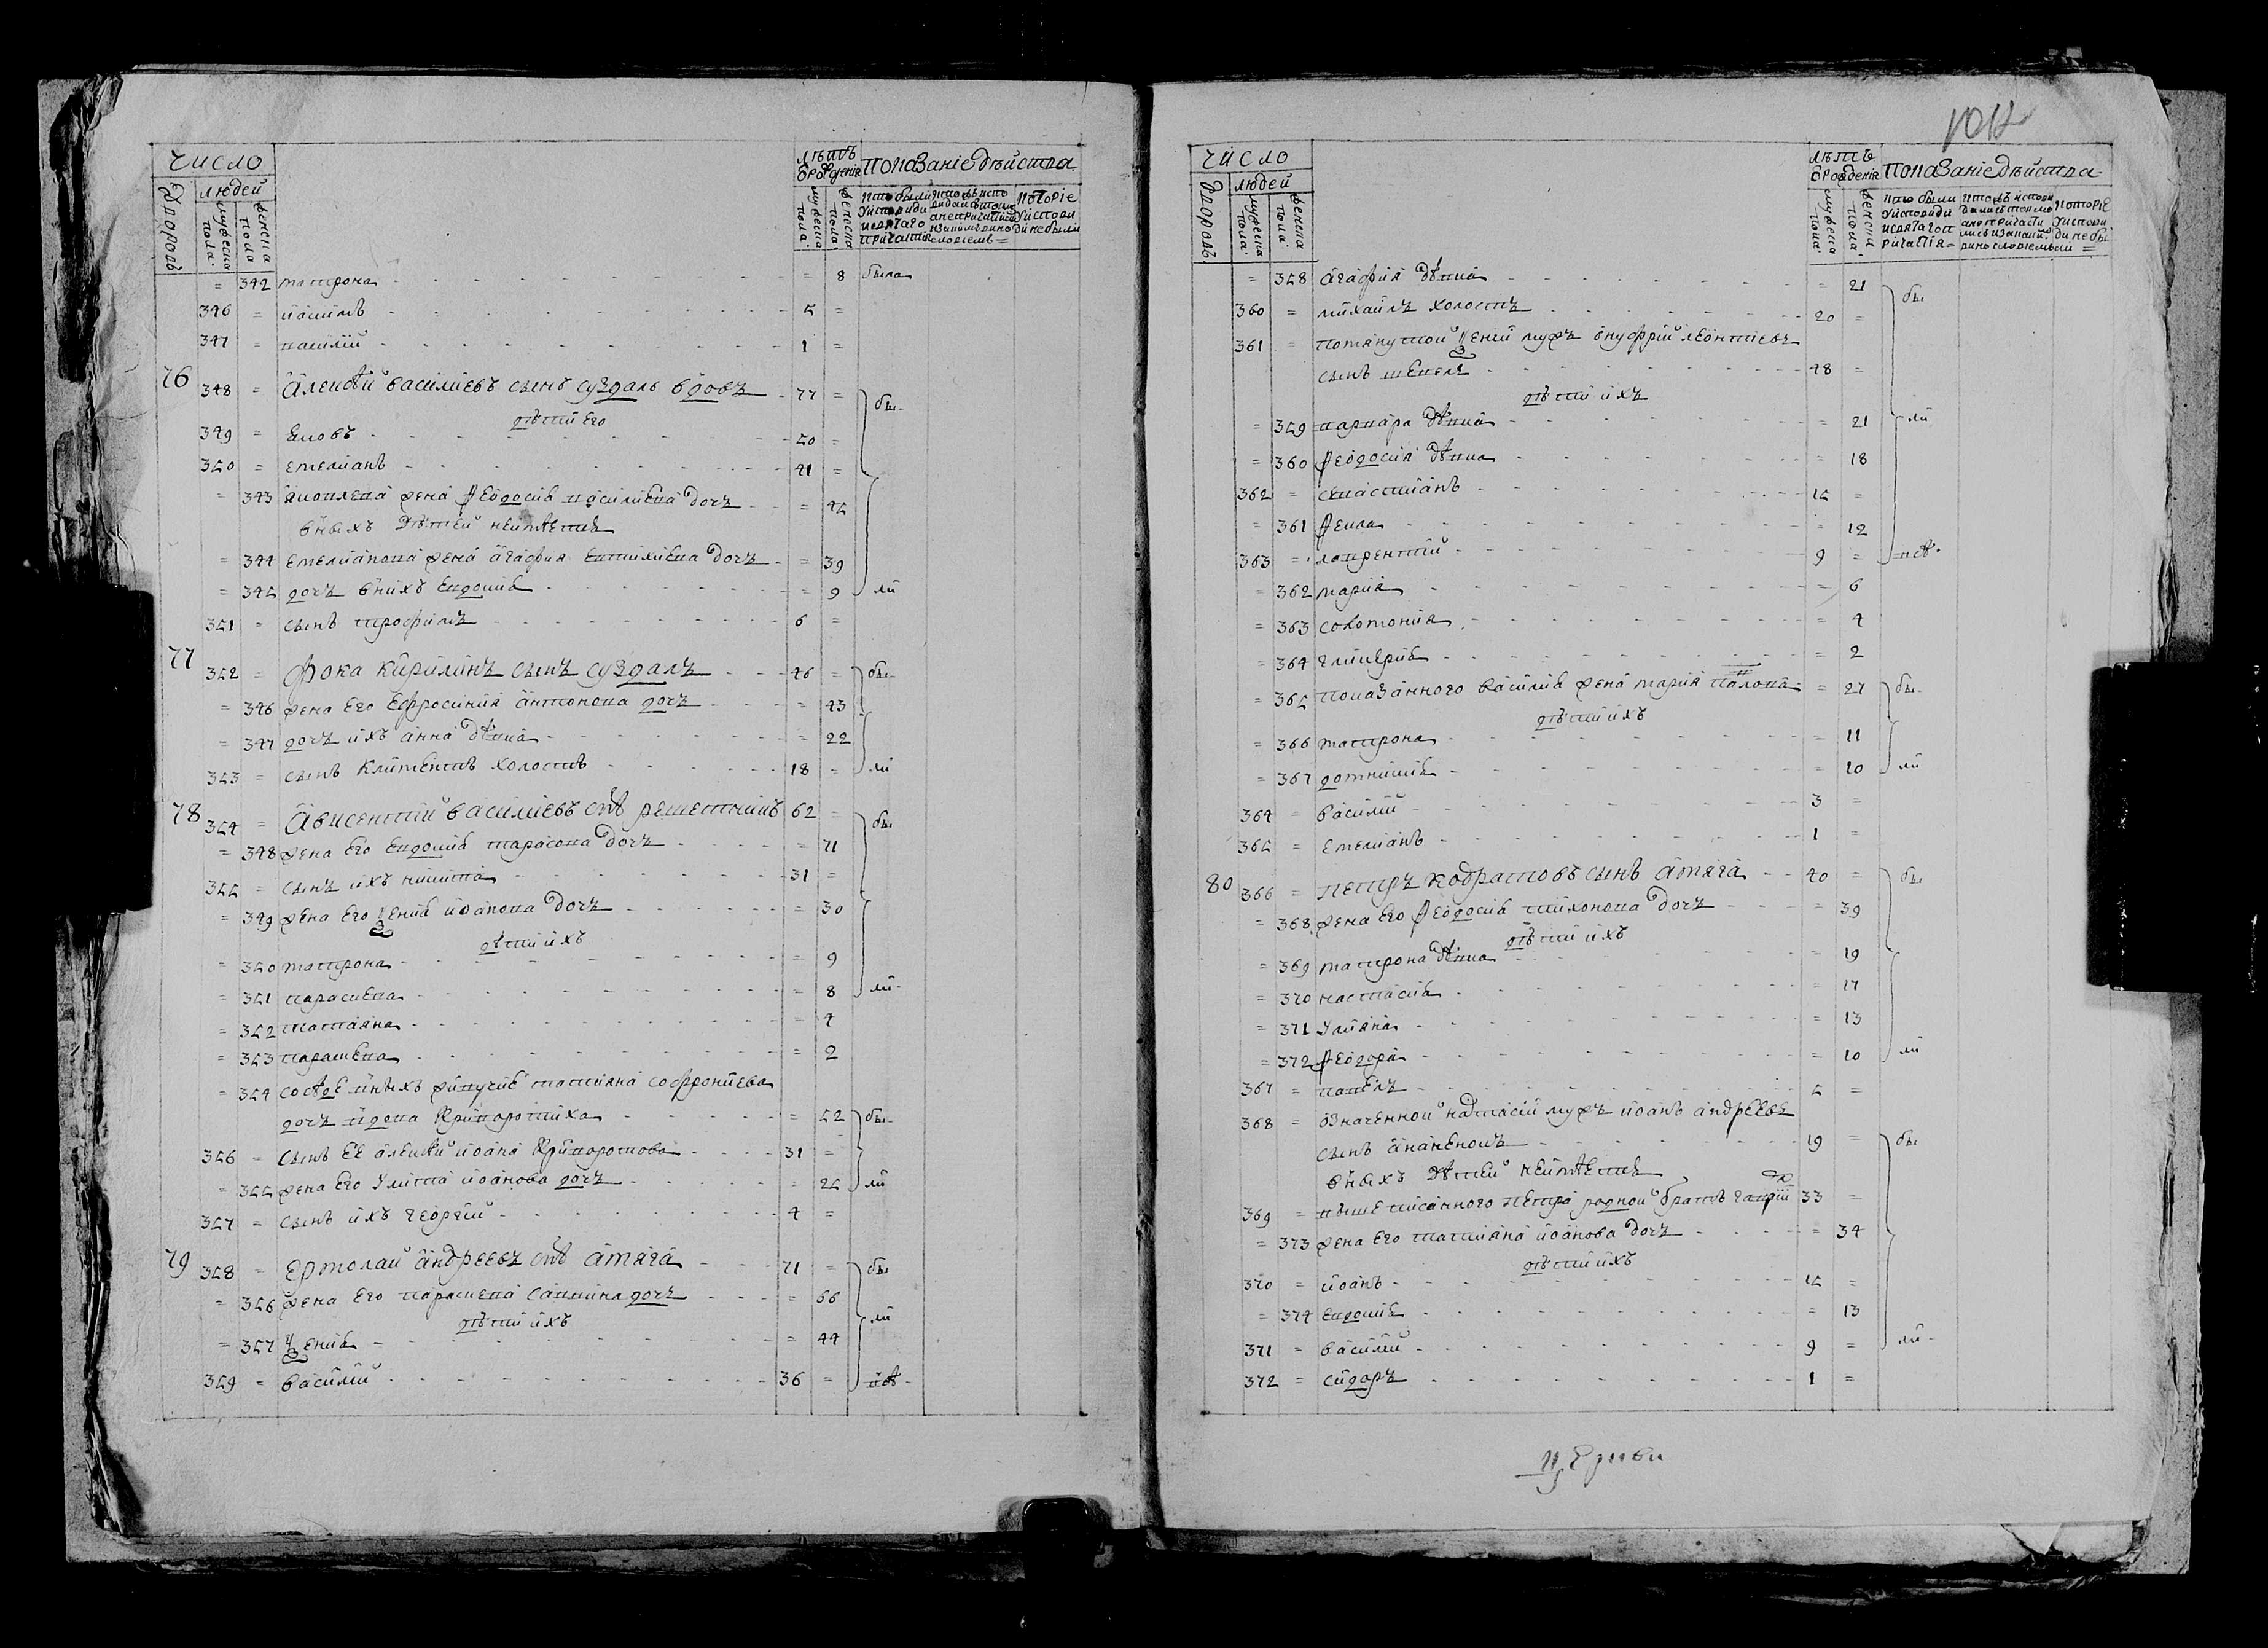 число
лѣтъ
показаніе дѣйства
людей
ѿ рожденія
дворовъ
мужеска пола
женска пола
мужеска пола
женска пола
= 342 матрона = 8 была
346 = иакимъ 5 =
347 = василій 1 =
76 348 = Алексѣй василіевъ сынъ суздаль вдовъ 77 = бы-
дѣти его
349 = Іаковъ 50 =
350 = емеліанъ 41 =
= 343 іаковлева жена Ѳеодосія василіева дочъ = 45
ѿ ныхъ дѣтей неимѣетъ
= 344 емеліанова жена агафия евтихіева дочъ = 39
= 345 дочъ ѿ нихъ евдокія = 9 ли
351 = сынъ трофимъ 6 =
77 352 = Фока кирилинъ сынъ суздалъ 46 = бы-
= 346 жена его ефросинія антонова дочъ = 43
= 347 дочъ ихъ анна дѣвка = 22
353 = сынъ климентъ холостъ 18 = ли
78 354 = Авксентій василіевъ снъ решетникъ 62 = бы
= 348 жена его евдокія тарасова дочъ = 71
355 = сынъ ихъ никита 31 =
= 349 жена его Ѯенія иоанова дочъ = 30
дѣти ихъ
= 350 матрона = 9
= 351 параскева = 8 ли-
= 352 татіяна = 4
= 353 параскева = 2
= 354 сосѣде ѿныхъ живучіе татіяна софроніева
дочъ вдова криворотиха = 52 бы-
356 = сынъ ее алексѣй иоана криворотова 31 =
= 355 жена его улита иоанова дочъ = 25 ли
357 = сынъ ихъ георгій 4 =
79 358 = Ермолай андреевъ снъ атяга 71 = бы
= 356 жена его параскева савина дочъ = 66
дѣти ихъ ли
= 357 Ѯенія = 44
359 = василій 36 =
число
лѣтъ
показаніе дѣйства
людей
ѿ рожденія
дворовъ
мужеска пола
женска пола
мужеска пола
женска пола
= 358 агафия дѣвка = 21
360 = михаилъ холостъ 20 = бы
361 = помянутой Ѯеніи мужъ онуфрій леонтіевъ
сынъ шевелъ 48 =
дѣти ихъ
= 359 варвара дѣвка = 21 ли
= 360 Ѳеодосія дѣвка = 18
362 = севастіянъ 15 =
= 361 Ѳекла = 12
363 = лаврентій 9 =
= 362 марія = 6
= 363 соломонія = 4
= 364 гликерія = 2
= 365 показанного василія жена марія павлова = 27 бы-
дѣти ихъ
= 366 матрона = 11
= 367 домникія = 10 ли
364 = василій 3 =
365 = емеліянъ 1 =
80 366 = петръ кодратовъ сынъ атяга 40 = бы
= 368 жена его Ѳеодосія тихонова дочъ = 39
дѣти ихъ
= 369 матрона дѣвка = 19
= 370 настасія = 17
= 371 уліяна = 13
= 372 Ѳеодора = 10 ли
367 = павелъ 5 =
368 = означенной настасіи мужъ иоанъ андреевъ
сынъ ананенокъ 19 = бы
ѿ ныхъ дѣтей неимѣетъ
369 = вышеписанного петра родной братъ гаврій 33 =
= 373 жена его татіяна иоанова дочъ = 34
дѣти ихъ
370 = иоанъ 15 =
= 374 евдокія = 13
371 = василій 9 = ли-
372 = сидоръ 1 =
церкви